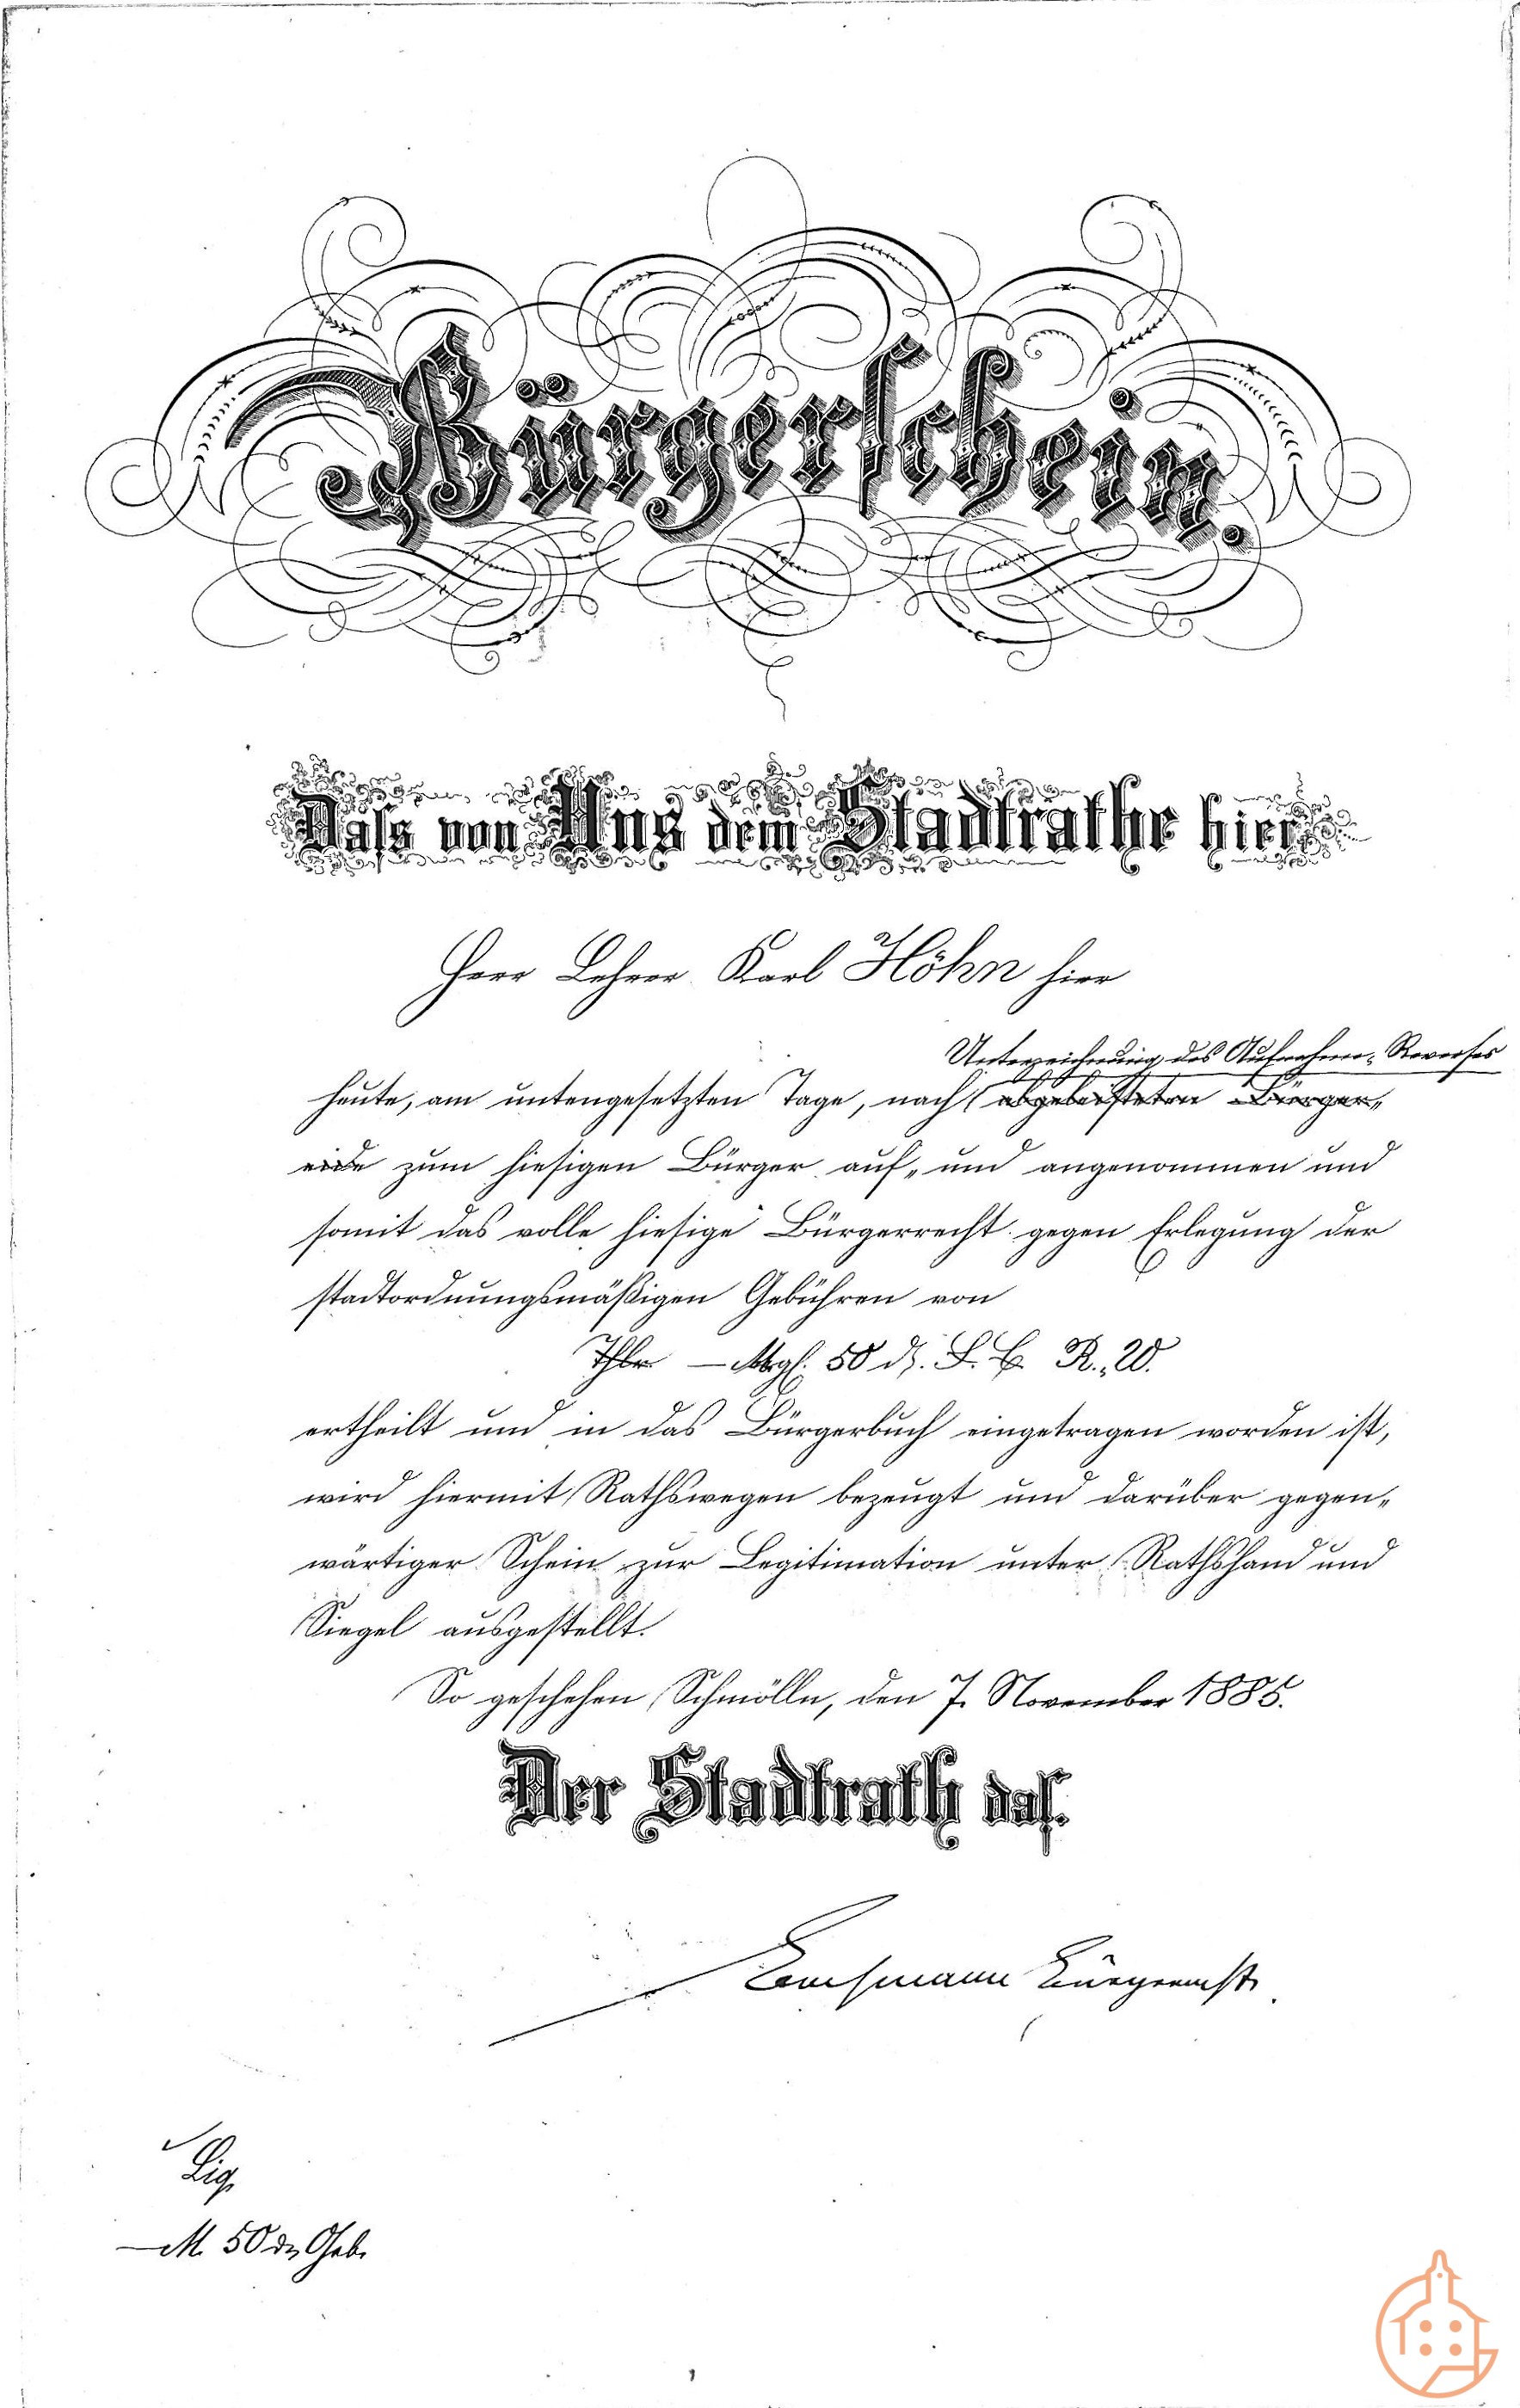 Bürgerschein.
Dass von Uns dem Stadtrathe hier
Herr Lehrer Karl Höhn hier
Unterzeichnung des Aufnahme-Reverses
heute, am untengesetzten Tage, nach abgeleisteten Bürger-
eide zum hiesigen Bürger auf- und angenommen und
somit das volle hiesige Bürgerrecht gegen Erlegung der
stadtordnungsmäßigen Gebühren von
Thlr — 50 d.
ertheilt und in das Bürgerbuch eingetragen worden ist,
wird hiermit Rathswegen bezeugt und darüber gegen-
wärtiger Schein zur Legitimation unter Rathshand und
Siegel ausgestellt.
So geschehen Schmölln, den 7. November 1885.
Der Stadtrath das.
Bürgermstr
Liq.
— M. 50 d. Geb.